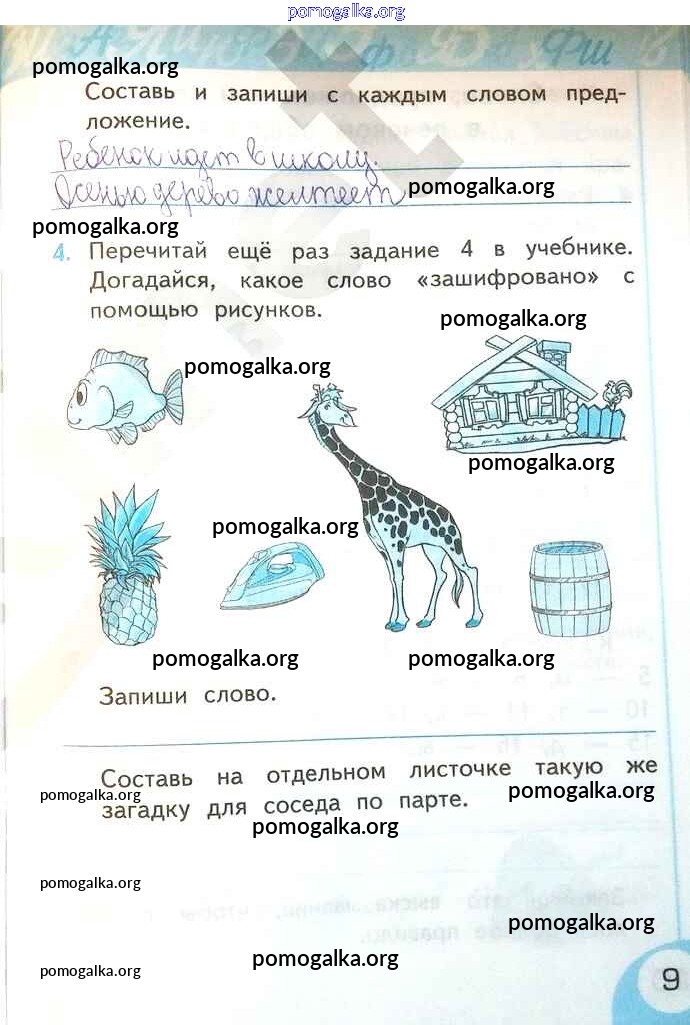 pomogalka.org
pomogalka.org
Составь и запиши с каждым словом пред-
ложение.
Ребёнок идет в школу.
Осенью дерево желтеет
pomogalka.org
pomogalka.org
4. Перечитай ещё раз задание 4 в учебнике.
Догадайся, какое слово «зашифровано» с
помощью рисунков.
pomogalka.org
pomogalka.org
pomogalka.org
pomogalka.org
pomogalka.org
pomogalka.org
Запиши слово.
Составь на отдельном листочке такую же
pomogalka.org
pomogalka.org
загадку для соседа по парте.
pomogalka.org
pomogalka.org
pomogalka.org
pomogalka.org
pomogalka.org
9